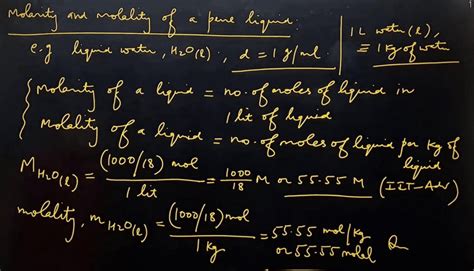 Molarity and molality of a pure liquid:
e.g liquid water, H2O(l), d = 1 g/ml.
1L water(l),
≡ 1 Kg of water
Molarity of a liquid = no. of moles of liquid in
1 lit of liquid
Molality of a liquid = no. of moles of liquid per Kg of
liquid
M H2O(l) = (1000/18) mol / 1 lit = 1000/18 M or 55.55 M (IIT-Adv)
molality, m H2O(l) = (1000/18) mol / 1 Kg = 55.55 mol/Kg
or 55.55 molal